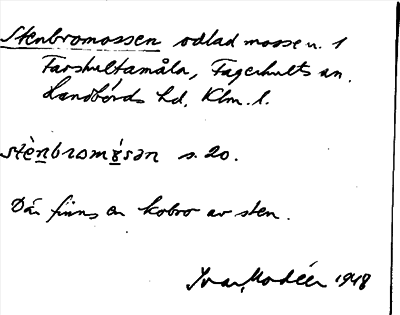 Stenbromossen odlad mosse n. 1
Farshultamåla, Fagerhults sn.
Handbörds hd. Klm. l.
stènbromɷ́sən s. 20.
Där finns en kobro av sten.
Ivar Modéer 1948